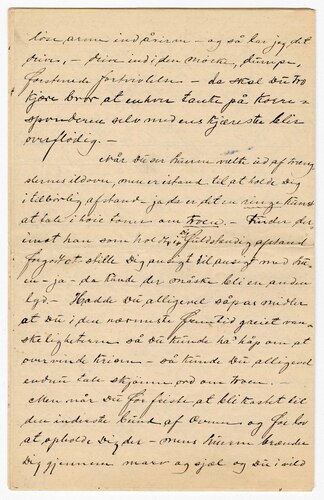 löse, armen ind årsrum - og så lar jeg det
drive, - drive ind i den mörke, dumpe,
forstenede fortvivlelse - da skal Du tro
kjære bror at enhver tanke på korre-
spondancen selv med ens kjæreste blir
overflödig. -
Når Du ser luerne vælte ud af træng
slernes ildovn, men er istand til at holde Dig
i tilbörlig afstand - ja da er det en ringe kunst
at tale i höie toner om troen. - Finder der-
imot han som holdt på og fuldstændig afstand
forgodt at stille Dig ansigt til ansigt med lu-
en - ja - da kunde der måske bli en anden
lyd. - Hadde Du alligevel såpas midler
at Du i den nærmeste fremtid greiet van-
skelighterne så Du kunde ha håp om at
overvinde krisen - så kunde Du alligevel
endnu tale skjönne ord om troen. -
Men når Du får friste, at bli kastet til
den inderste bund af ovnen og får lov
at opholde Dig der - mens luerne brænder
Dig gjennem marv og sjæl og Du i vild